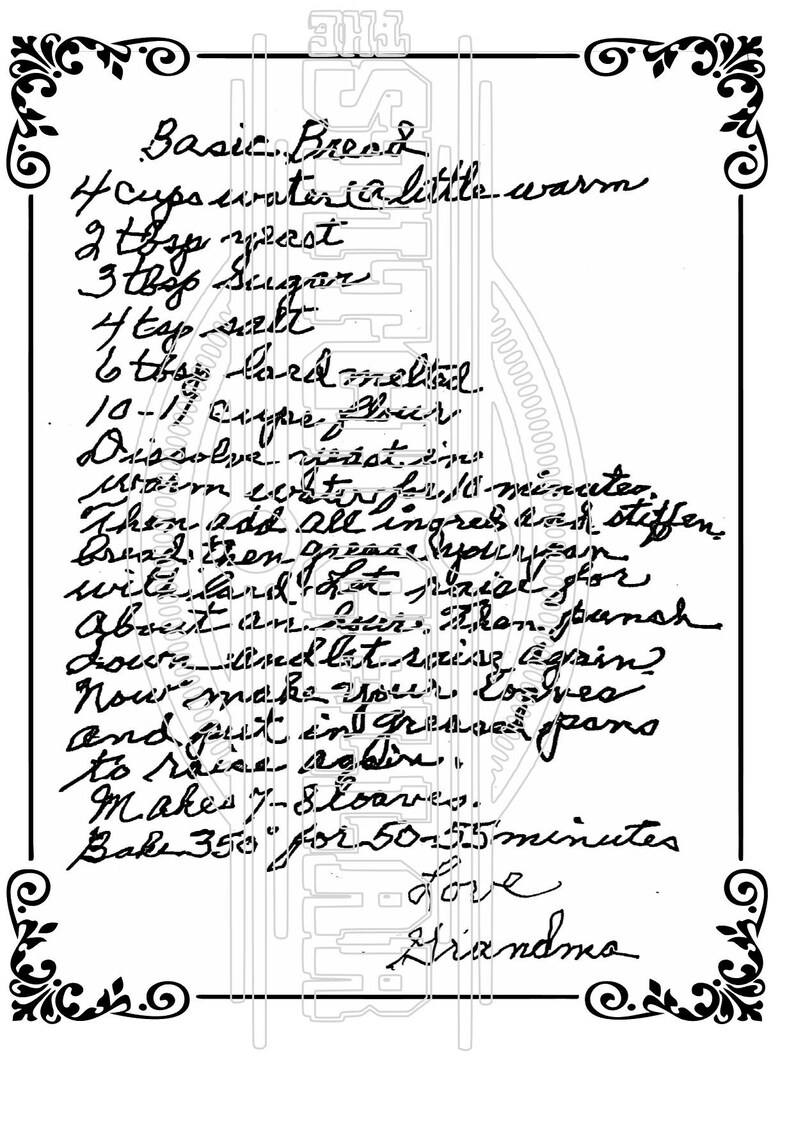 Basic Bread
4 cups water (a little warm
2 tbsp yeast
3 tbsp Sugar
4 tsp salt
6 tbsp lard melted
10-1 cups flour
Dissolve yeast in
warm water for 10 minutes.
Then add all ingred and stiffen
bread then grease your pan
with lard. Let raise for
About an hour. Then punch
down and let raise again.
Now make your loaves
and put in greased pans
to raise again.
Makes 7-8 loaves.
Bake 350° for 50-55 minutes
Love
Grandma
THE